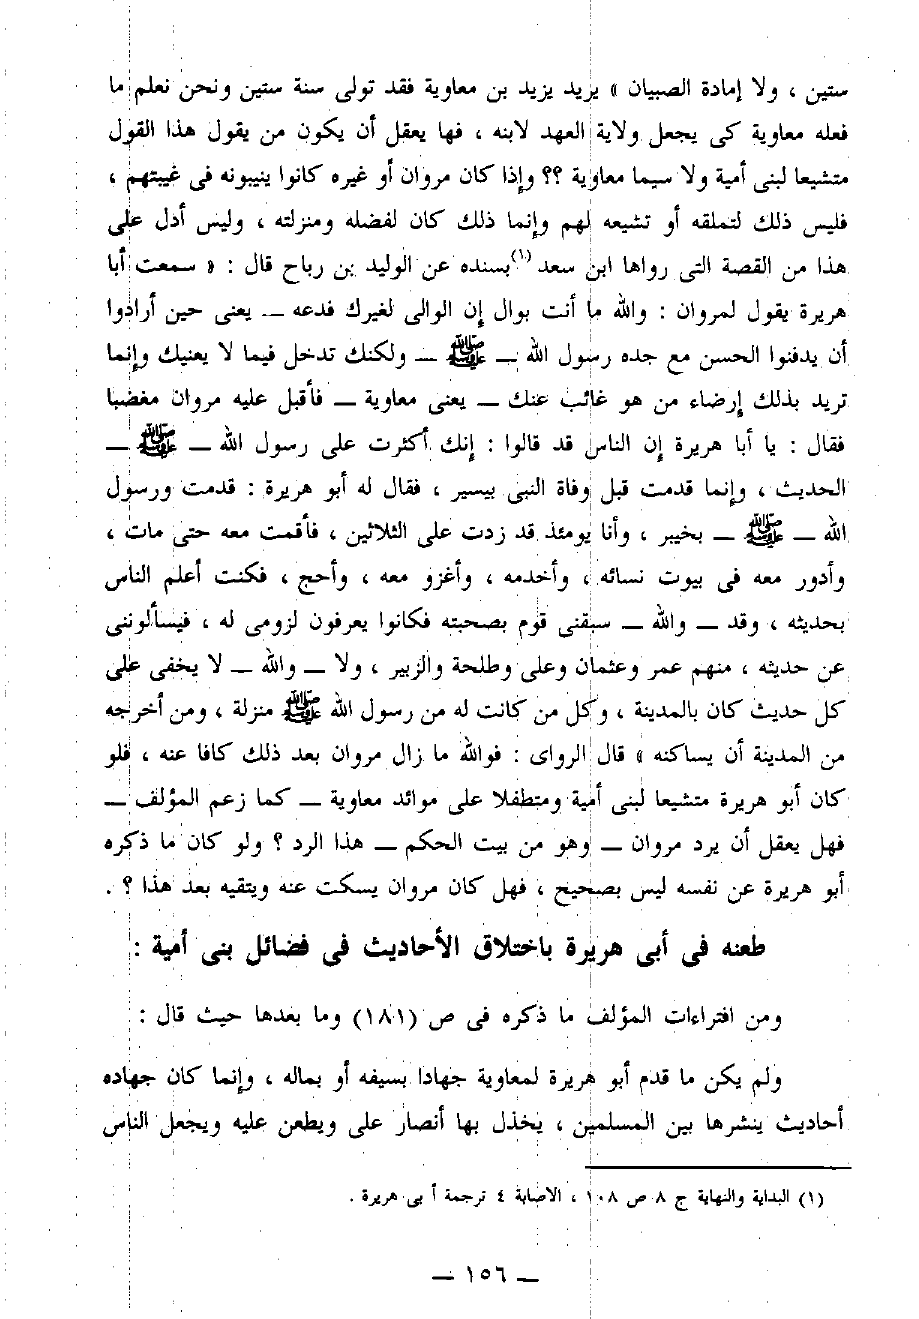 ستين ، ولا إمادة الصبيان » يريد يزيد بن معاوية فقد تولى سنة ستين ونحن نعلم ما
فعله معاوية كى يجعل ولاية العهد لابنه ، فها يعقل أن يكون من يقول هذا القول
متشيعا لبنى أمية ولا سيما معاوية ؟؟ وإذا كان مروان أو غيره كانوا ينيبونه فى غيبتهم ،
فليس ذلك لتملقه أو تشيعه لهم وإنما ذلك كان لفضله ومنزلته ، وليس أدل على
هذا من القصة التى رواها ابن سعد (١) بسنده عن الوليد بن رباح قال : « سمعت أبا
هريرة يقول لمروان : والله ما أنت بوال إن الوالى لغيرك فدعه ــ يعنى حين أرادوا
أن يدفنوا الحسن مع جده رسول الله ــ ﷺ ــ ولكنك تدخل فيما لا يعنيك وإنما
تريد بذلك إرضاء من هو غائب عنك ــ يعنى معاوية ــ فأقبل عليه مروان مغضبا
فقال : يا أبا هريرة إن الناس قد قالوا : إنك أكثرت على رسول الله ــ ﷺ ــ
الحديث ، وإنما قدمت قبل وفاة النبى بيسير ، فقال له أبو هريرة : قدمت ورسول
الله ــ ﷺ ــ بخيبر ، وأنا يومئذ قد زدت على الثلاثين ، فأقمت معه حتى مات ،
وأدور معه فى بيوت نسائه ، وأخدمه ، وأغزو معه ، وأحج ، فكنت أعلم الناس
بحديثه ، وقد ــ والله ــ سبقنى قوم بصحبته فكانوا يعرفون لزومى له ، فيسألوننى
عن حديثه ، منهم عمر وعثمان وعلى وطلحة والزبير ، ولا ــ والله ــ لا يخفى على
كل حديث كان بالمدينة ، وكل من كانت له من رسول الله ﷺ منزلة ، ومن أخرجه
من المدينة أن يساكنه » قال الرواى : فوالله ما زال مروان بعد ذلك كافا عنه ، فلو
كان أبو هريرة متشيعا لبنى أمية ومتطفلا على موائد معاوية ــ كما زعم المؤلف ــ
فهل يعقل أن يرد مروان ــ وهو من بيت الحكم ــ هذا الرد ؟ ولو كان ما ذكره
أبو هريرة عن نفسه ليس بصحيح ، فهل كان مروان يسكت عنه ويتقيه بعد هذا ؟ .
طعنه فى أبى هريرة باختلاق الأحاديث فى فضائل بنى أمية :
ومن افتراءات المؤلف ما ذكره فى ص (١٨١) وما بعدها حيث قال :
ولم يكن ما قدم أبو هريرة لمعاوية جهادا بسيفه أو بماله ، وإنما كان جهاده
أحاديث ينشرها بين المسلمين ، يخذل بها أنصار على ويطعن عليه ويجعل الناس
(١) البداية والنهاية ج ٨ ص ١٠٨ ، الاصابة ٤ ترجمة أ بى هريرة .
ــ ١٥٦ ــ